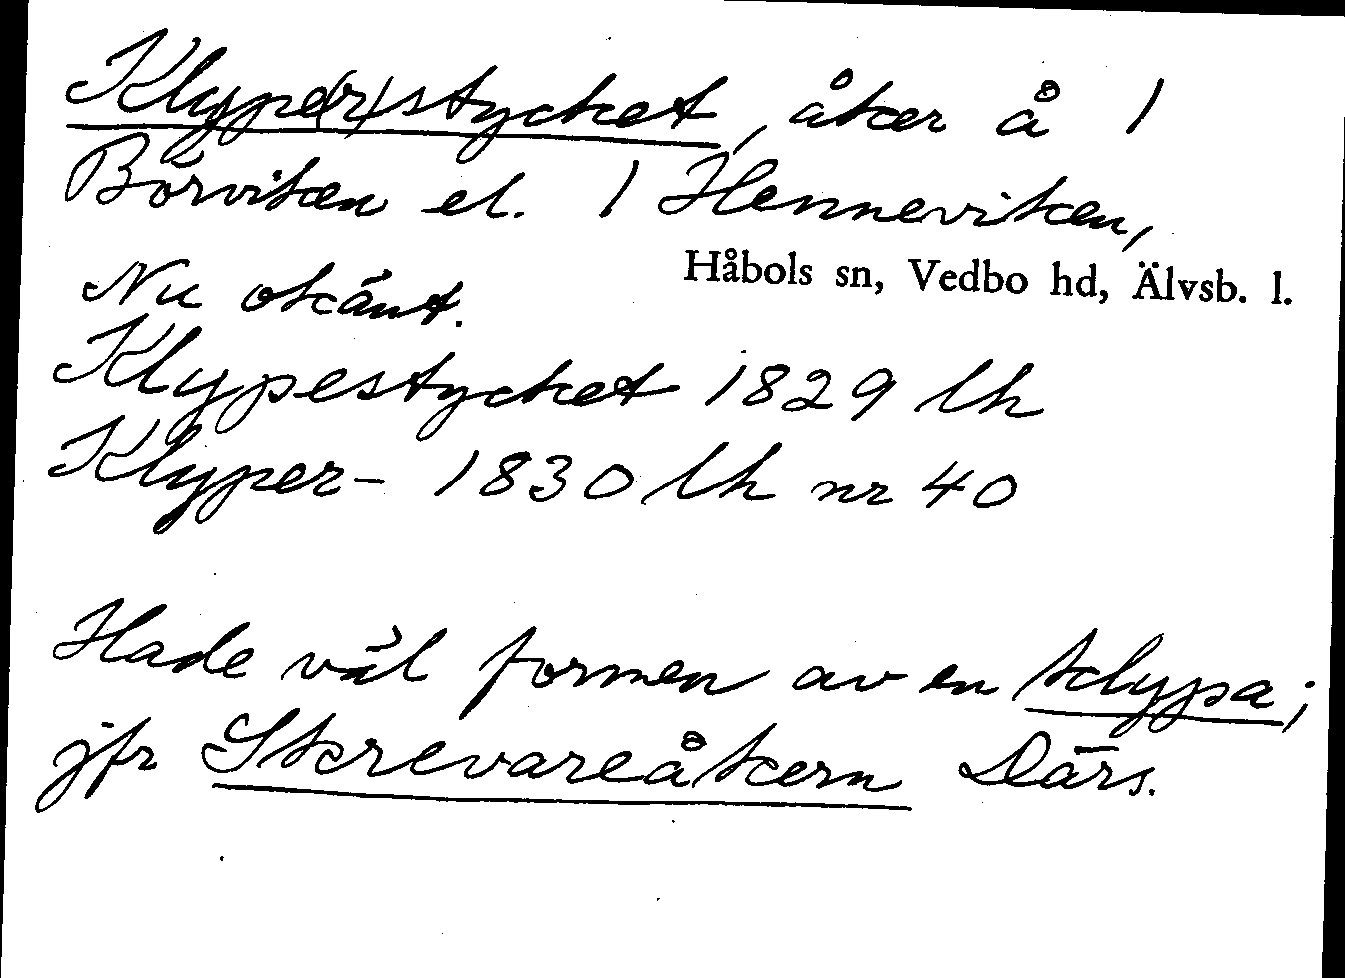 Klype(r)stycket, åker å 1
Börviken el. 1 Henneviken,
Håbols sn, Vedbo hd, Älvsb. l.
Nu okänt.
Klypestycket 1829 lh
Klyper- 1830 lh nr 40
Hade väl formen av en klypa;
jfr Skrevareåkern Därs.